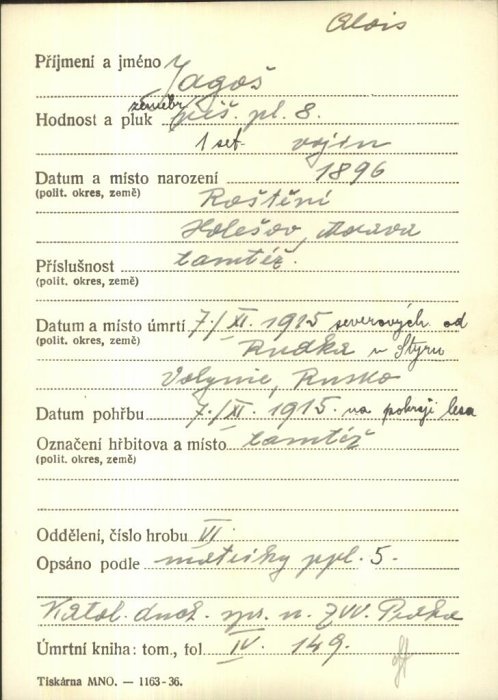 Alois
Příjmení a jméno Jagoš
zeměbr.
Hodnost a pluk pěš. pl. 8.
1 set. vojín
Datum a místo narození 1896
(polit. okres, země) Roštění
Holešov, Morava
Příslušnost tamtéž.
(polit. okres, země)
Datum a místo úmrtí 7./XI. 1915 severových. od
(polit. okres, země) Rudka u Styru
Volynie, Rusko
Datum pohřbu 7./XI. 1915. na pokraji lesa
Označení hřbitova a místo tamtéž
(polit. okres, země)
Oddělení, číslo hrobu VI
Opsáno podle matriky ppl. 5.
Katol. duch. spr. n. ZVV. Praha
Úmrtní kniha: tom., fol IV. 149.
Tiskárna MNO. — 1163-36.